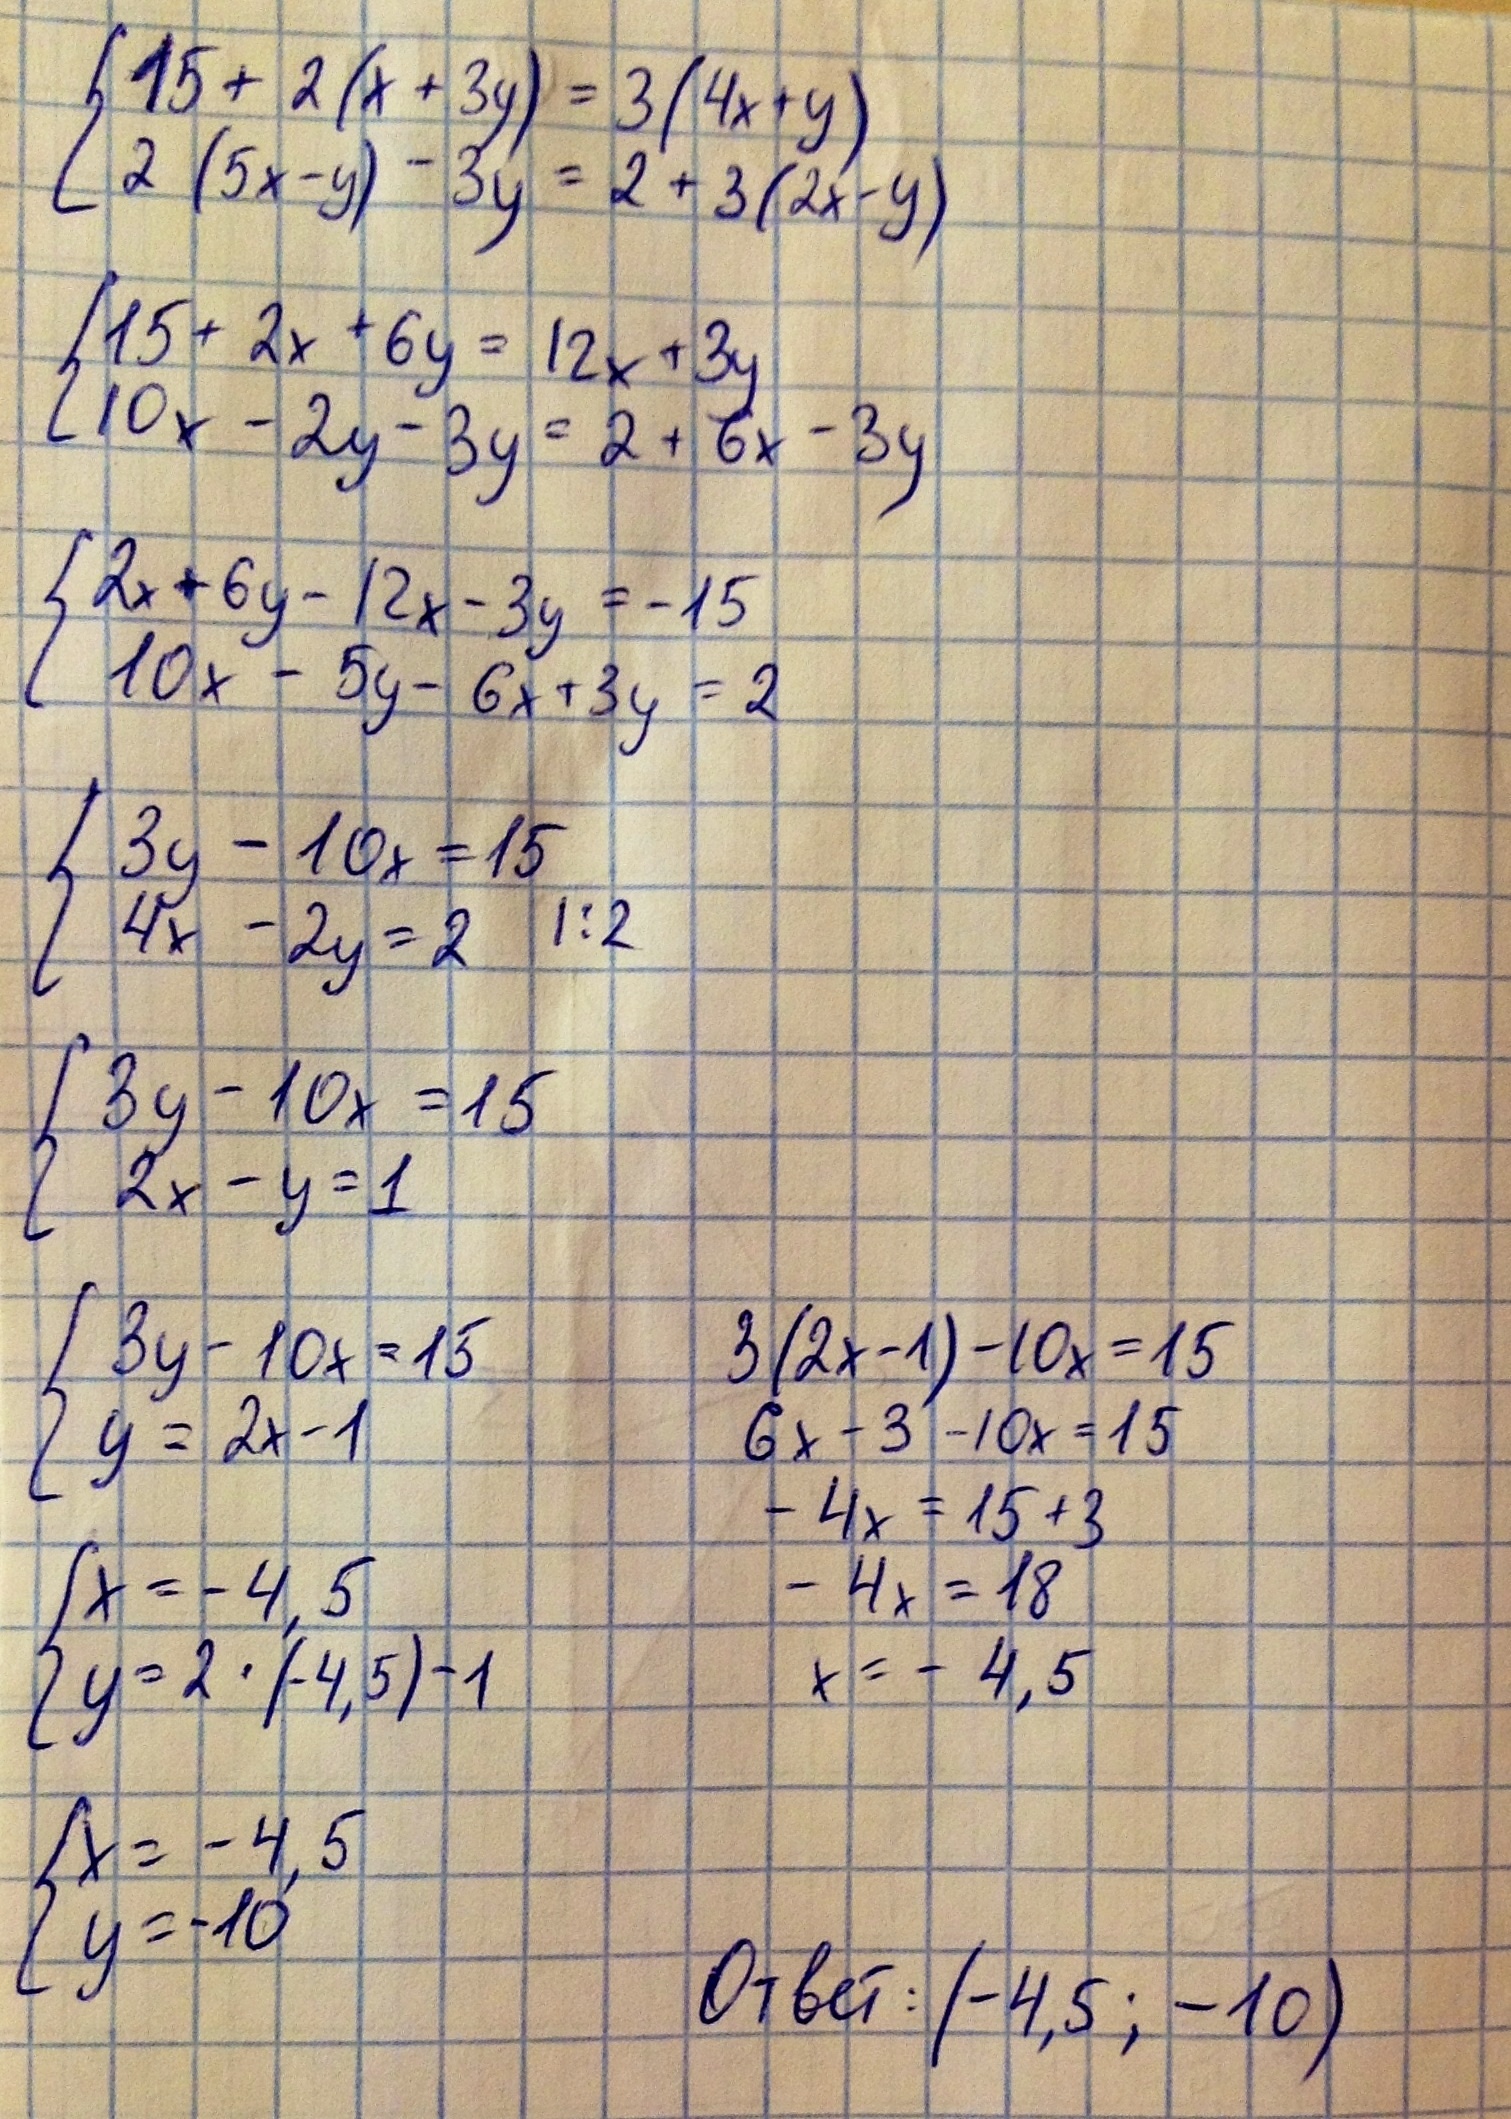 15 + 2(x + 3y) = 3(4x + y)
2 (5x - y) - 3y = 2 + 3(2x - y)
15 + 2x + 6y = 12x + 3y
10x - 2y - 3y = 2 + 6x - 3y
2x + 6y - 12x - 3y = -15
10x - 5y - 6x + 3y = 2
3y - 10x = 15
4x - 2y = 2 |:2
3y - 10x = 15
2x - y = 1
3y - 10x = 15
y = 2x - 1
3(2x - 1) - 10x = 15
6x - 3 - 10x = 15
- 4x = 15 + 3
- 4x = 18
x = - 4,5
x = - 4,5
y = 2 · (-4,5) - 1
x = - 4,5
y = -10
Ответ: (-4,5 ; -10)